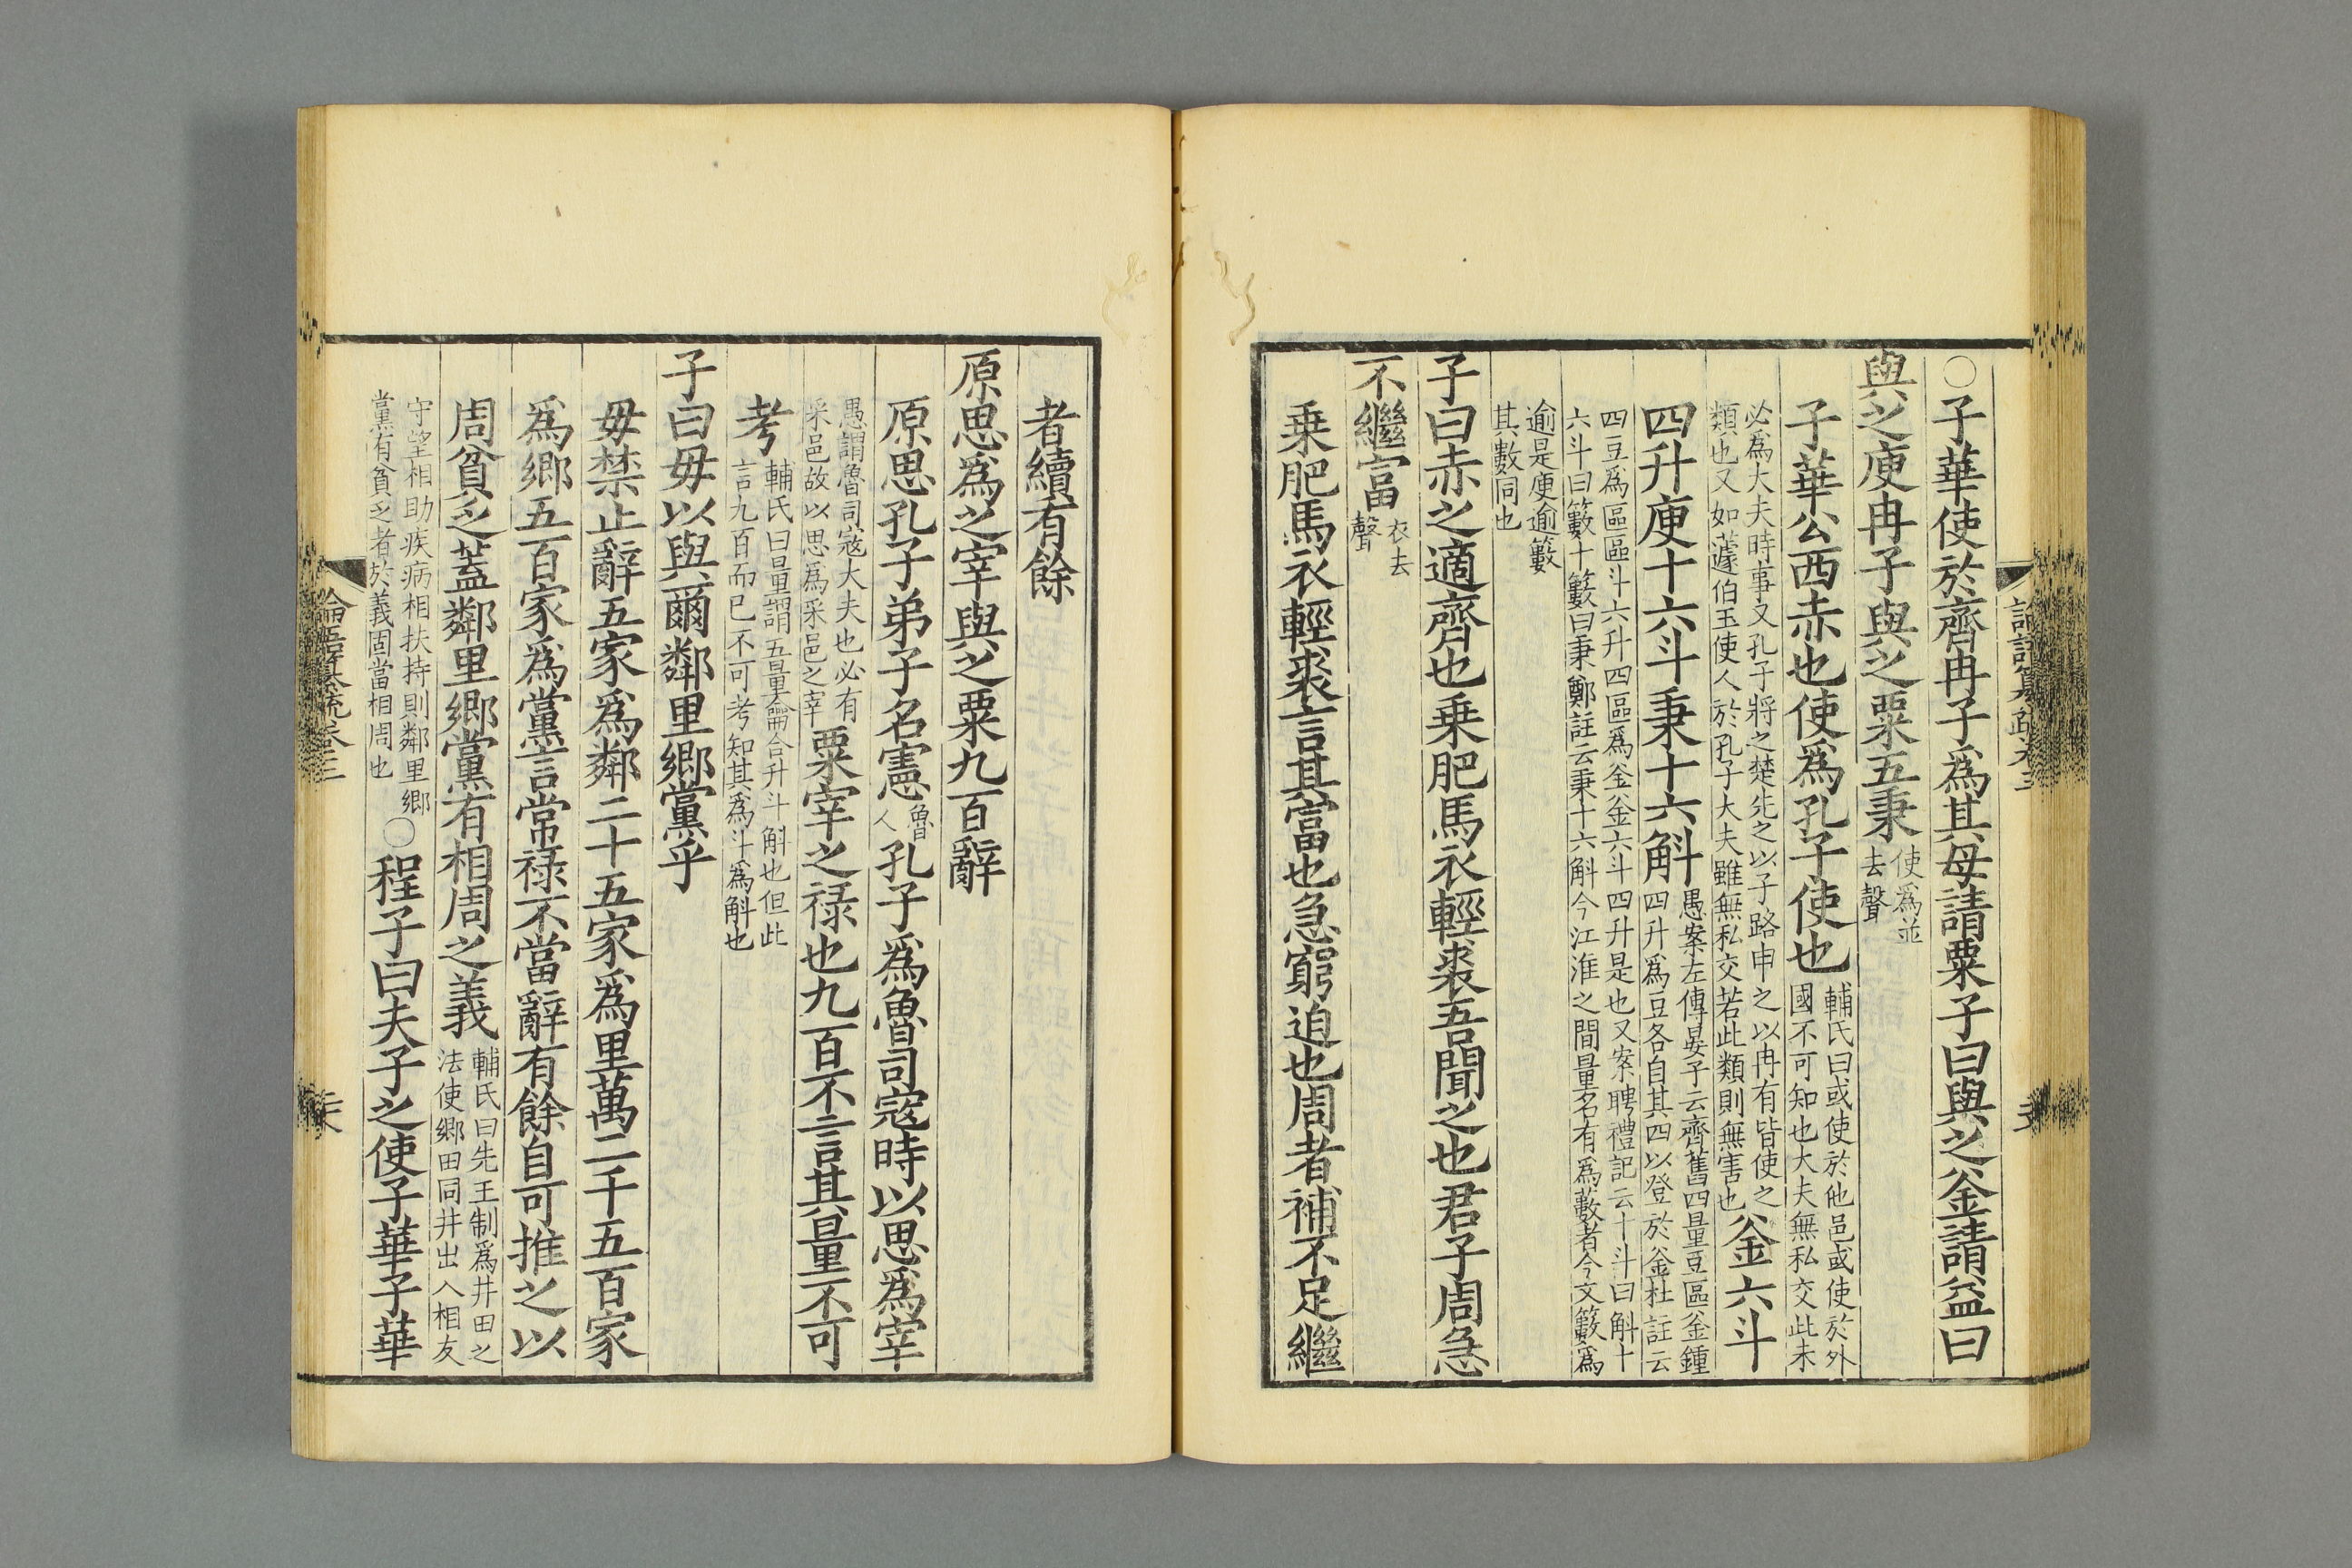 ○子華使於齊冉子爲其母請粟子曰與之釜請益曰
與之庾冉子與之粟五秉使爲並去聲
子華公西赤也使爲孔子使也輔氏曰或使於他邑或使於外國不可知也大夫無私交此未
必爲大夫時事又孔子將之楚先之以子路申之以冉有皆使之類也又如蘧伯玉使人於孔子大夫雖無私交若此類則無害也釜六斗
四升庾十六斗秉十六斛愚案左傳晏子云齊舊四量豆區釜鍾四升爲豆各自其四以登於釜杜註云
四豆爲區區斗六升四區爲釜釜六斗四升是也又案聘禮記云十斗曰斛十六斗曰籔十籔曰秉鄭註云秉十六斛今江淮之間量名有爲藪者今文籔爲
逾是庾逾籔其數同也
子曰赤之適齊也乗肥馬衣輕裘吾聞之也君子周急
不繼富衣去聲
乗肥馬衣輕裘言其富也急窮迫也周者補不足繼
者續有餘
原思爲之宰與之粟九百辭
原思孔子弟子名憲魯人孔子爲魯司寇時以思爲宰
愚謂魯司寇大夫也必有采邑故以思爲采邑之宰粟宰之禄也九百不言其量不可
考輔氏曰量謂五量龠合升斗斛也但此言九百而已不可考知其爲斗爲斛也
子曰毋以與爾鄰里鄉黨乎
毋禁止辭五家爲鄰二十五家爲里萬二千五百家
爲鄉五百家爲黨言常禄不當辭有餘自可推之以
周貧乏蓋鄰里鄉黨有相周之義輔氏曰先王制爲井田之法使鄉田同井出入相友
守望相助疾病相扶持則鄰里鄉黨有貧乏者於義固當相周也○程子曰夫子之使子華子華
論語纂疏卷三